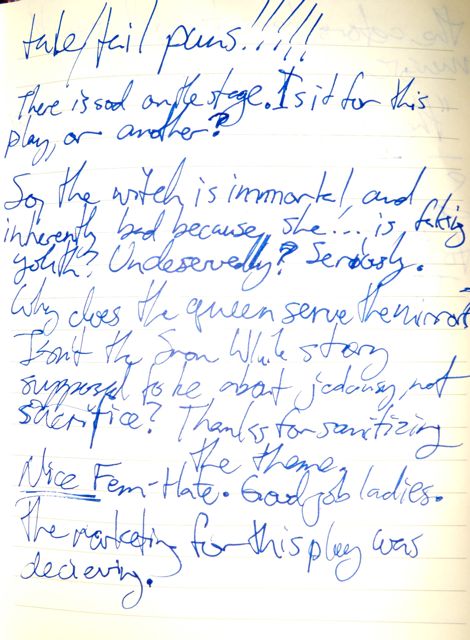 tale/tail puns!!!!!
There is sod on the stage. Is it for this
play, or another?
So, the witch is immortal, and
inherently bad because she... is faking
youth? Undeservedly? Seriously.
Why does the queen serve the mirror?
Isn't the Snow White story
supposed to be about jealousy, not
sacrifice? Thanks for sanitizing
the theme.
Nice Fem-Hate. Good job ladies.
The marketing for this play was
decieving.